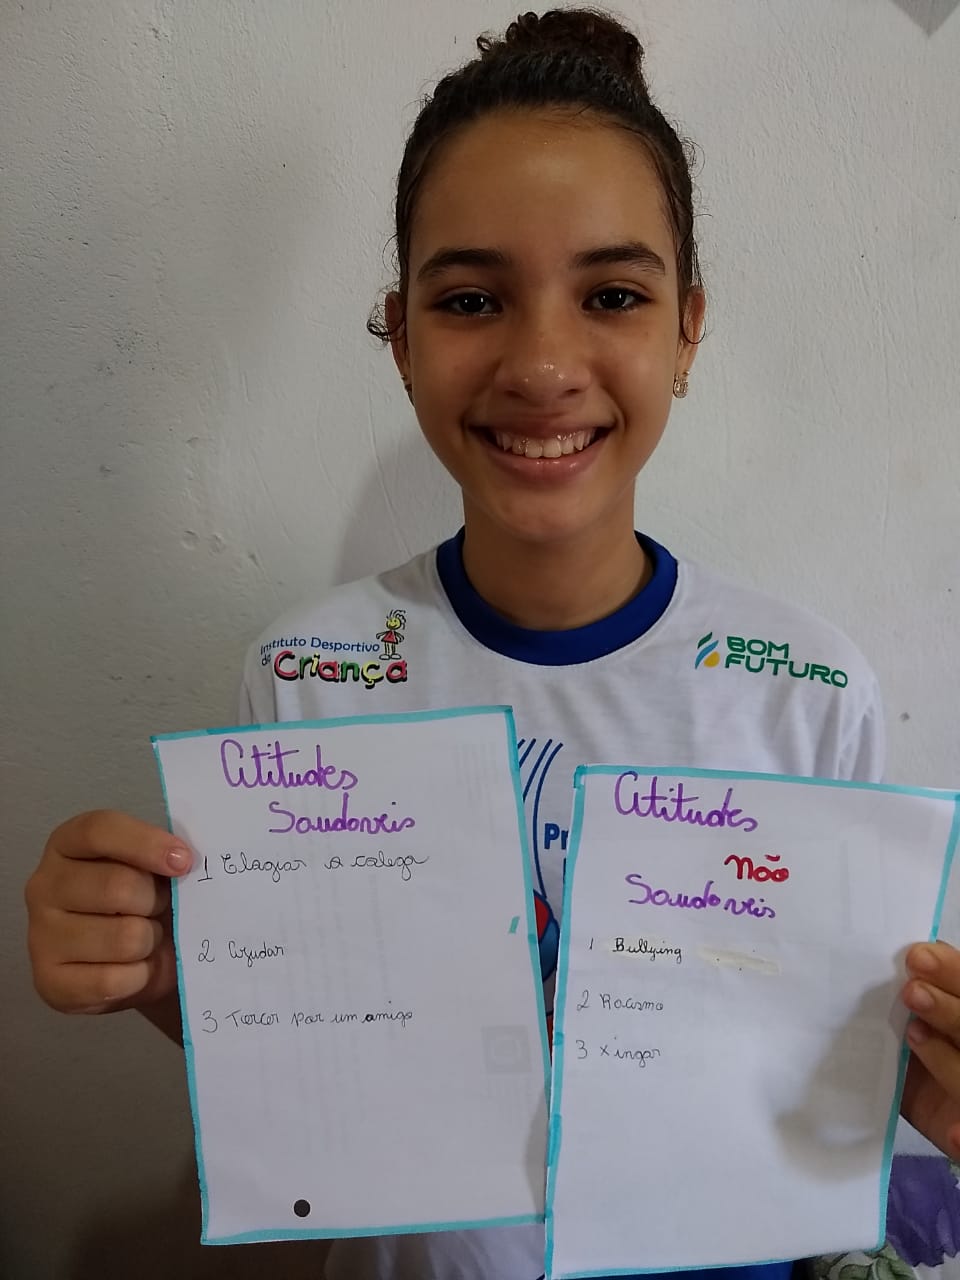 Instituto Desportivo
da
Criança
BOM
FUTURO
Atitudes
Saudaveis
1 Elogiar a colega
2 Ajudar
3 Torcer por um amigo
Pr
Atitudes
Não
Saudaveis
1 Bullying
2 Racismo
3 Xingar